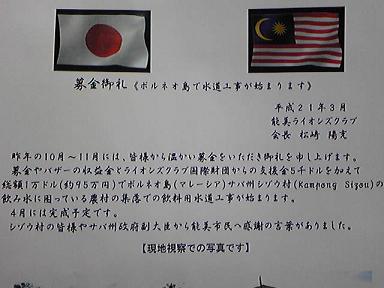 募金御礼（ボルネオ島で水道工事が始まります）
平成21年3月
能美ライオンズクラブ
会長 松崎 陽充
昨年の10月～11月には、皆様から温かい募金をいただき御礼を申し上げます。
募金やバザーの収益金とライオンズクラブ国際財団からの支援金5千ドルを加えて
総額1万ドル(約95万円)でボルネオ島(マレーシア)サバ州シゾウ村(Kampong Sigou)の
飲み水に困っている農村の集落での飲料用水道工事が始まります。
4月には完成予定です。
シゾウ村の皆様やサバ州政府副大臣から能美市民へ感謝の言葉がありました。
【現地視察での写真です】